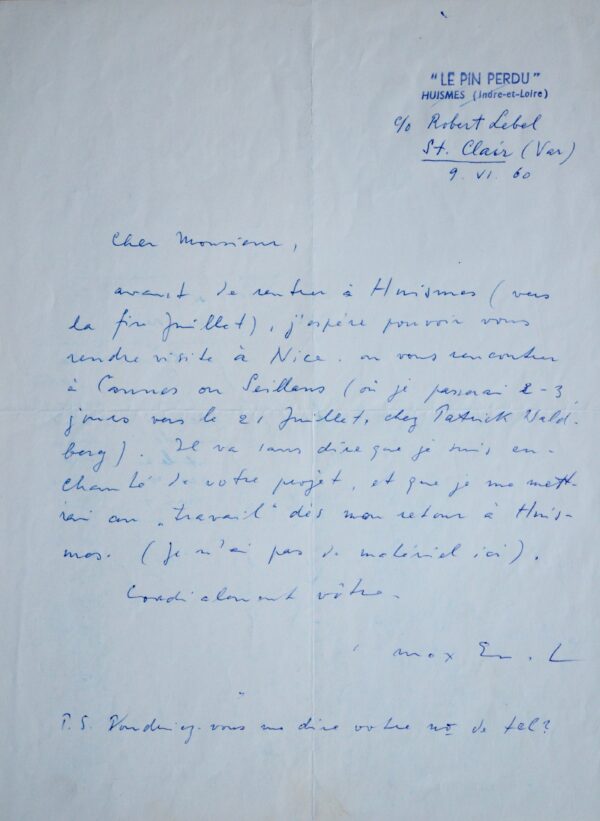 "LE PIN PERDU"
HUISMES (Indre-et-Loire)
c/o Robert Lebel
St. Clair (Var)
9. VI. 60
Cher Monsieur,
avant de rentrer à Huismes (vers
la fin Juillet), j'espère pouvoir vous
rendre visite à Nice. ou vous rencontrer
à Cannes ou Seillans (où je passerai 2-3
jours vers le 21 Juillet, chez Patrick Wald-
berg). Il va sans dire que je suis en-
chanté de votre projet, et que je me mett-
rai au "travail" dès mon retour à Huis-
mes. (Je n'ai pas de matériel ici).
Cordialement vôtre.
max Ernst
P.S. Voudriez-vous me dire votre no de tel?